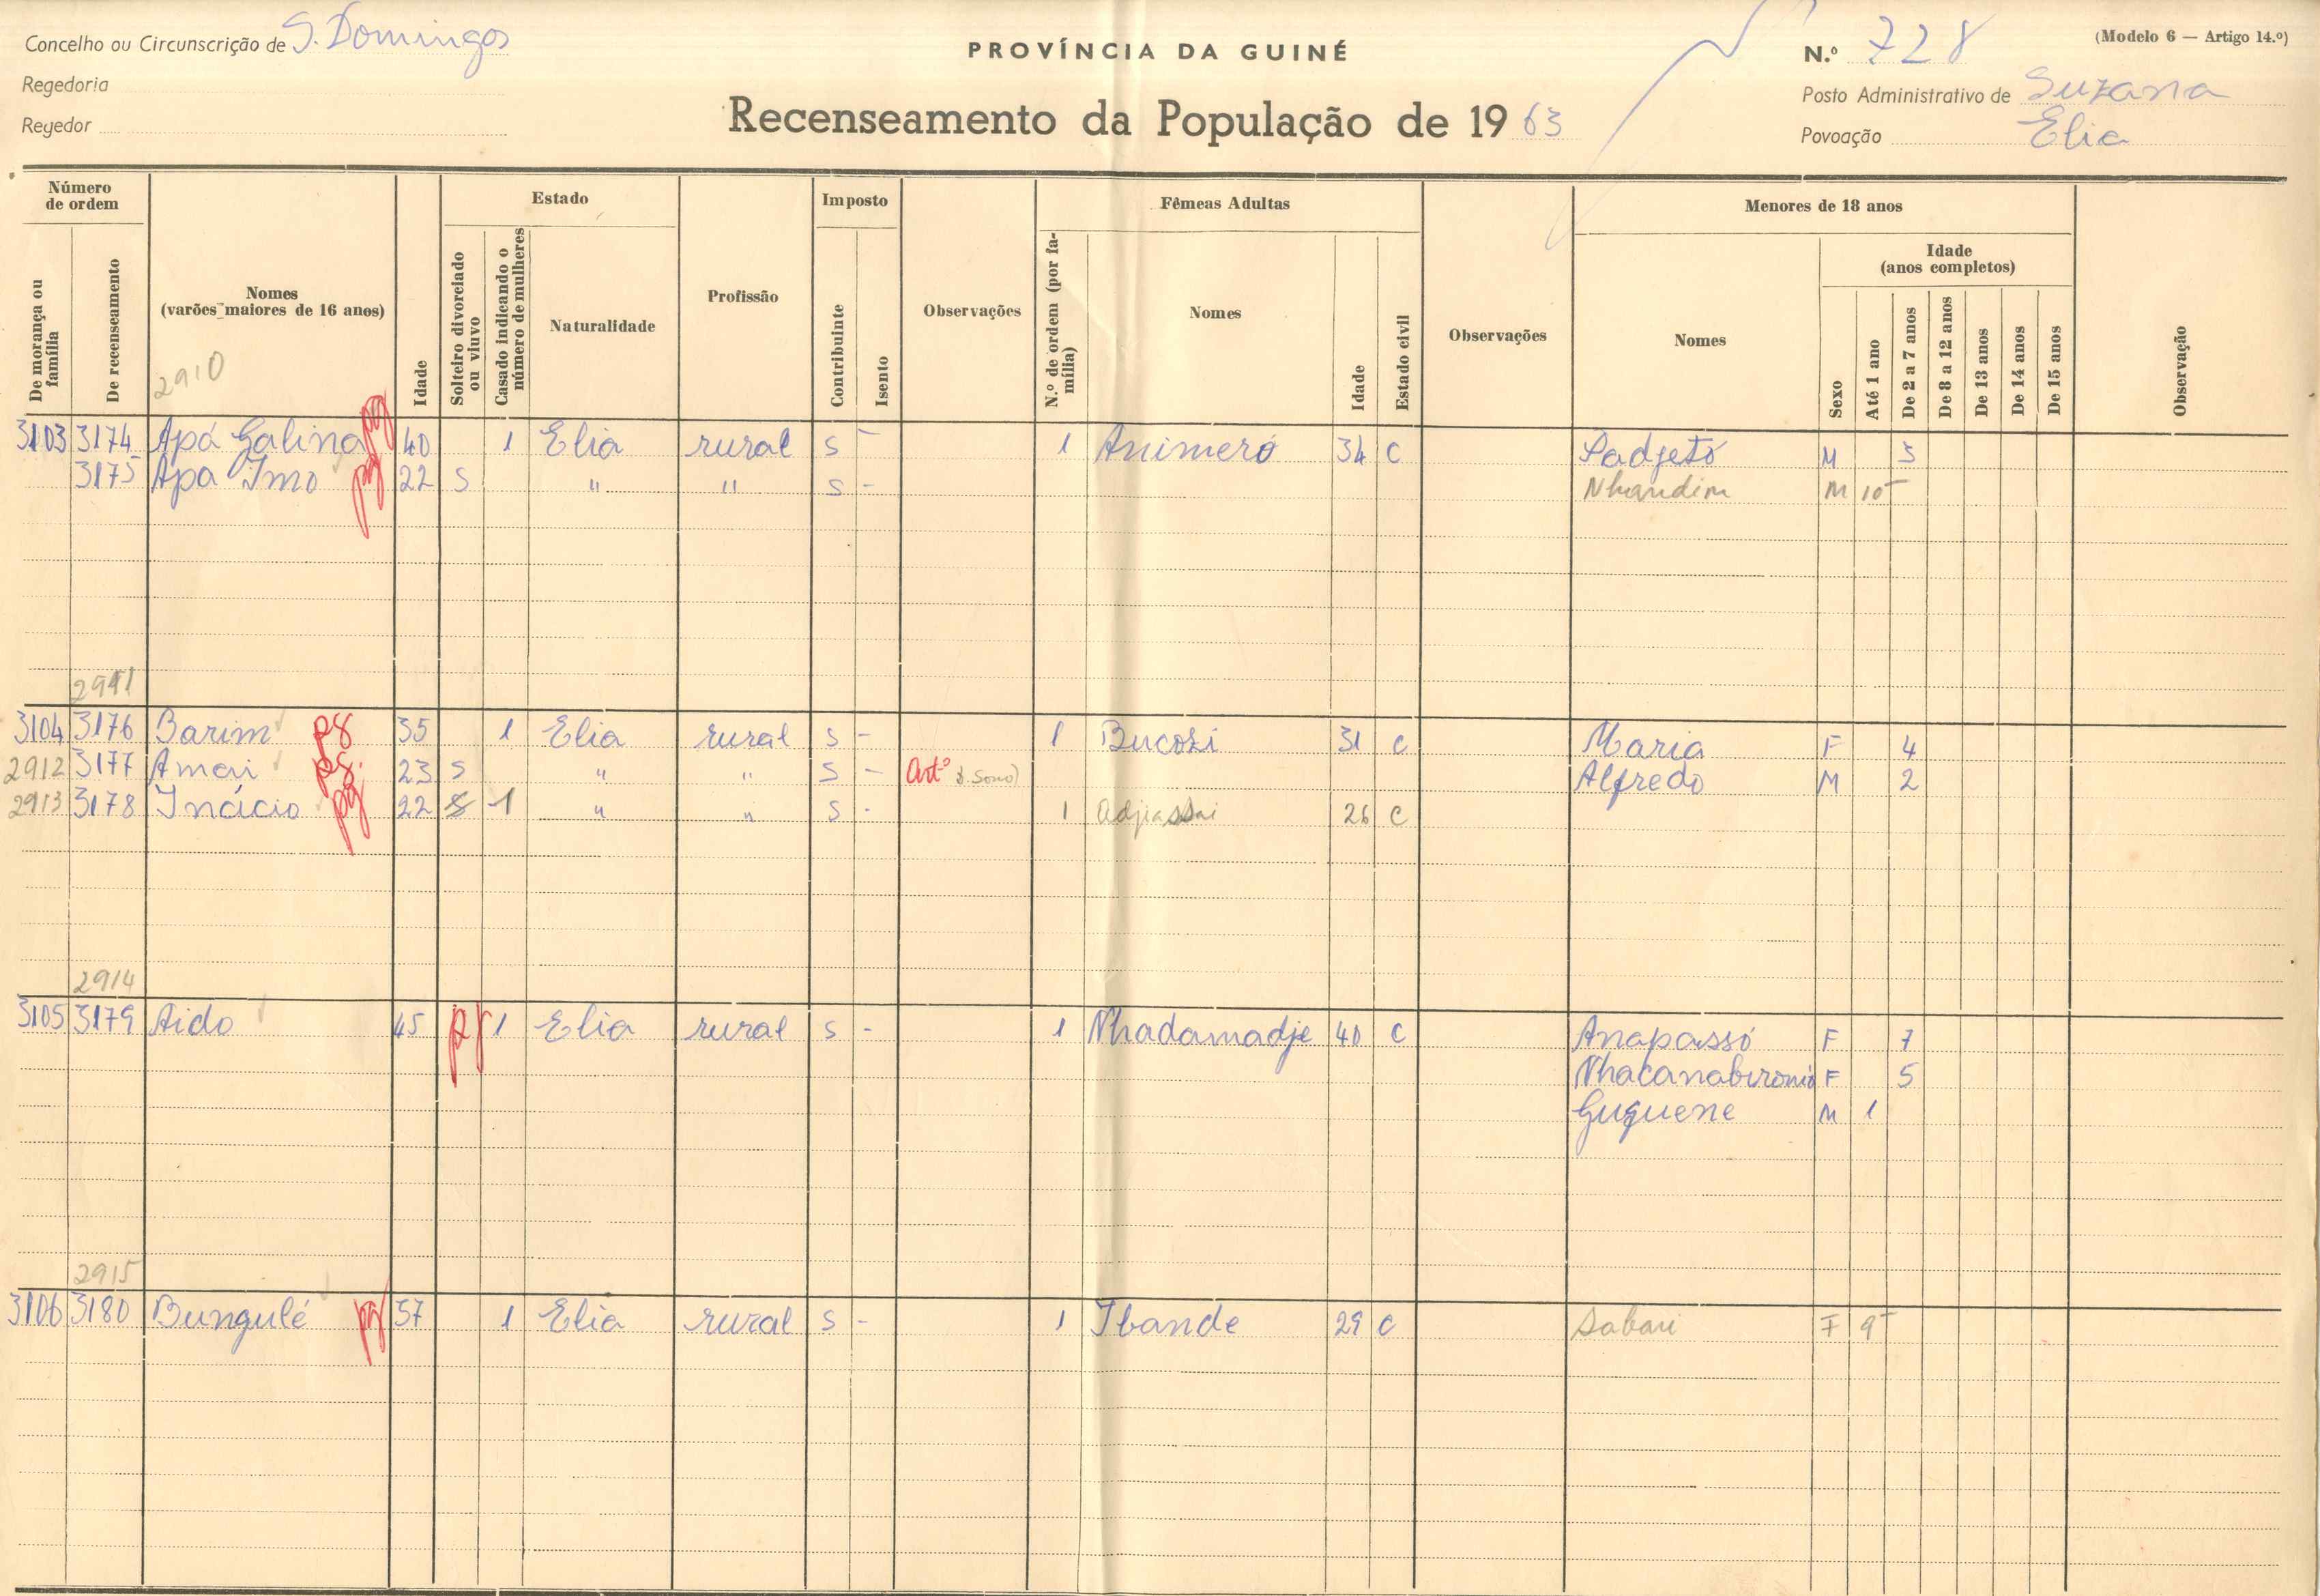 Concelho ou Circunscrição de S. Domingos
Regedoria
Regedor
PROVÍNCIA DA GUINÉ
Recenseamento da População de 1963
(Modelo 6 — Artigo 14.º)
N.º 728
Posto Administrativo de Suzana
Povoação Elia
Número de ordem
De morança ou família
De recenseamento
Nomes
(varões maiores de 16 anos)
2910
Idade
Estado
Solteiro divorciado ou viuvo
Casado indicando o número de mulheres
Naturalidade
Profissão
Imposto
Contribuinte
Isento
Observações
Fêmeas Adultas
N.º de ordem (por família)
Nomes
Idade
Estado civil
Observações
Menores de 18 anos
Nomes
Sexo
Idade
(anos completos)
Até 1 ano
De 2 a 7 anos
De 8 a 12 anos
De 13 anos
De 14 anos
De 15 anos
Observação
3103 3174 Apá Galina pg 40 1 Elia rural S - 1 Animeró 34 C Sadjetó M 5
3175 Apa Imo pg 22 S " " S - Nhandim M 10-
2911
3104 3176 Barim pg 35 1 Elia rural S - 1 Bucosi 31 C Maria F 4
2912 3177 Amai pg. 23 S " " S - Artº Alfredo M 2
2913 3178 Inácio pg 22 S 1 " " S - 1 Adjiassai 26 C
2914
3105 3179 Aido 45 pg 1 Elia rural S - 1 Nhadamadje 40 C Anapassó F 7
Nhacanabironió F 5
Guguene M 1
2915
3106 3180 Bungulé pg 57 1 Elia rural S - 1 Ibande 29 C Sabari F 9-